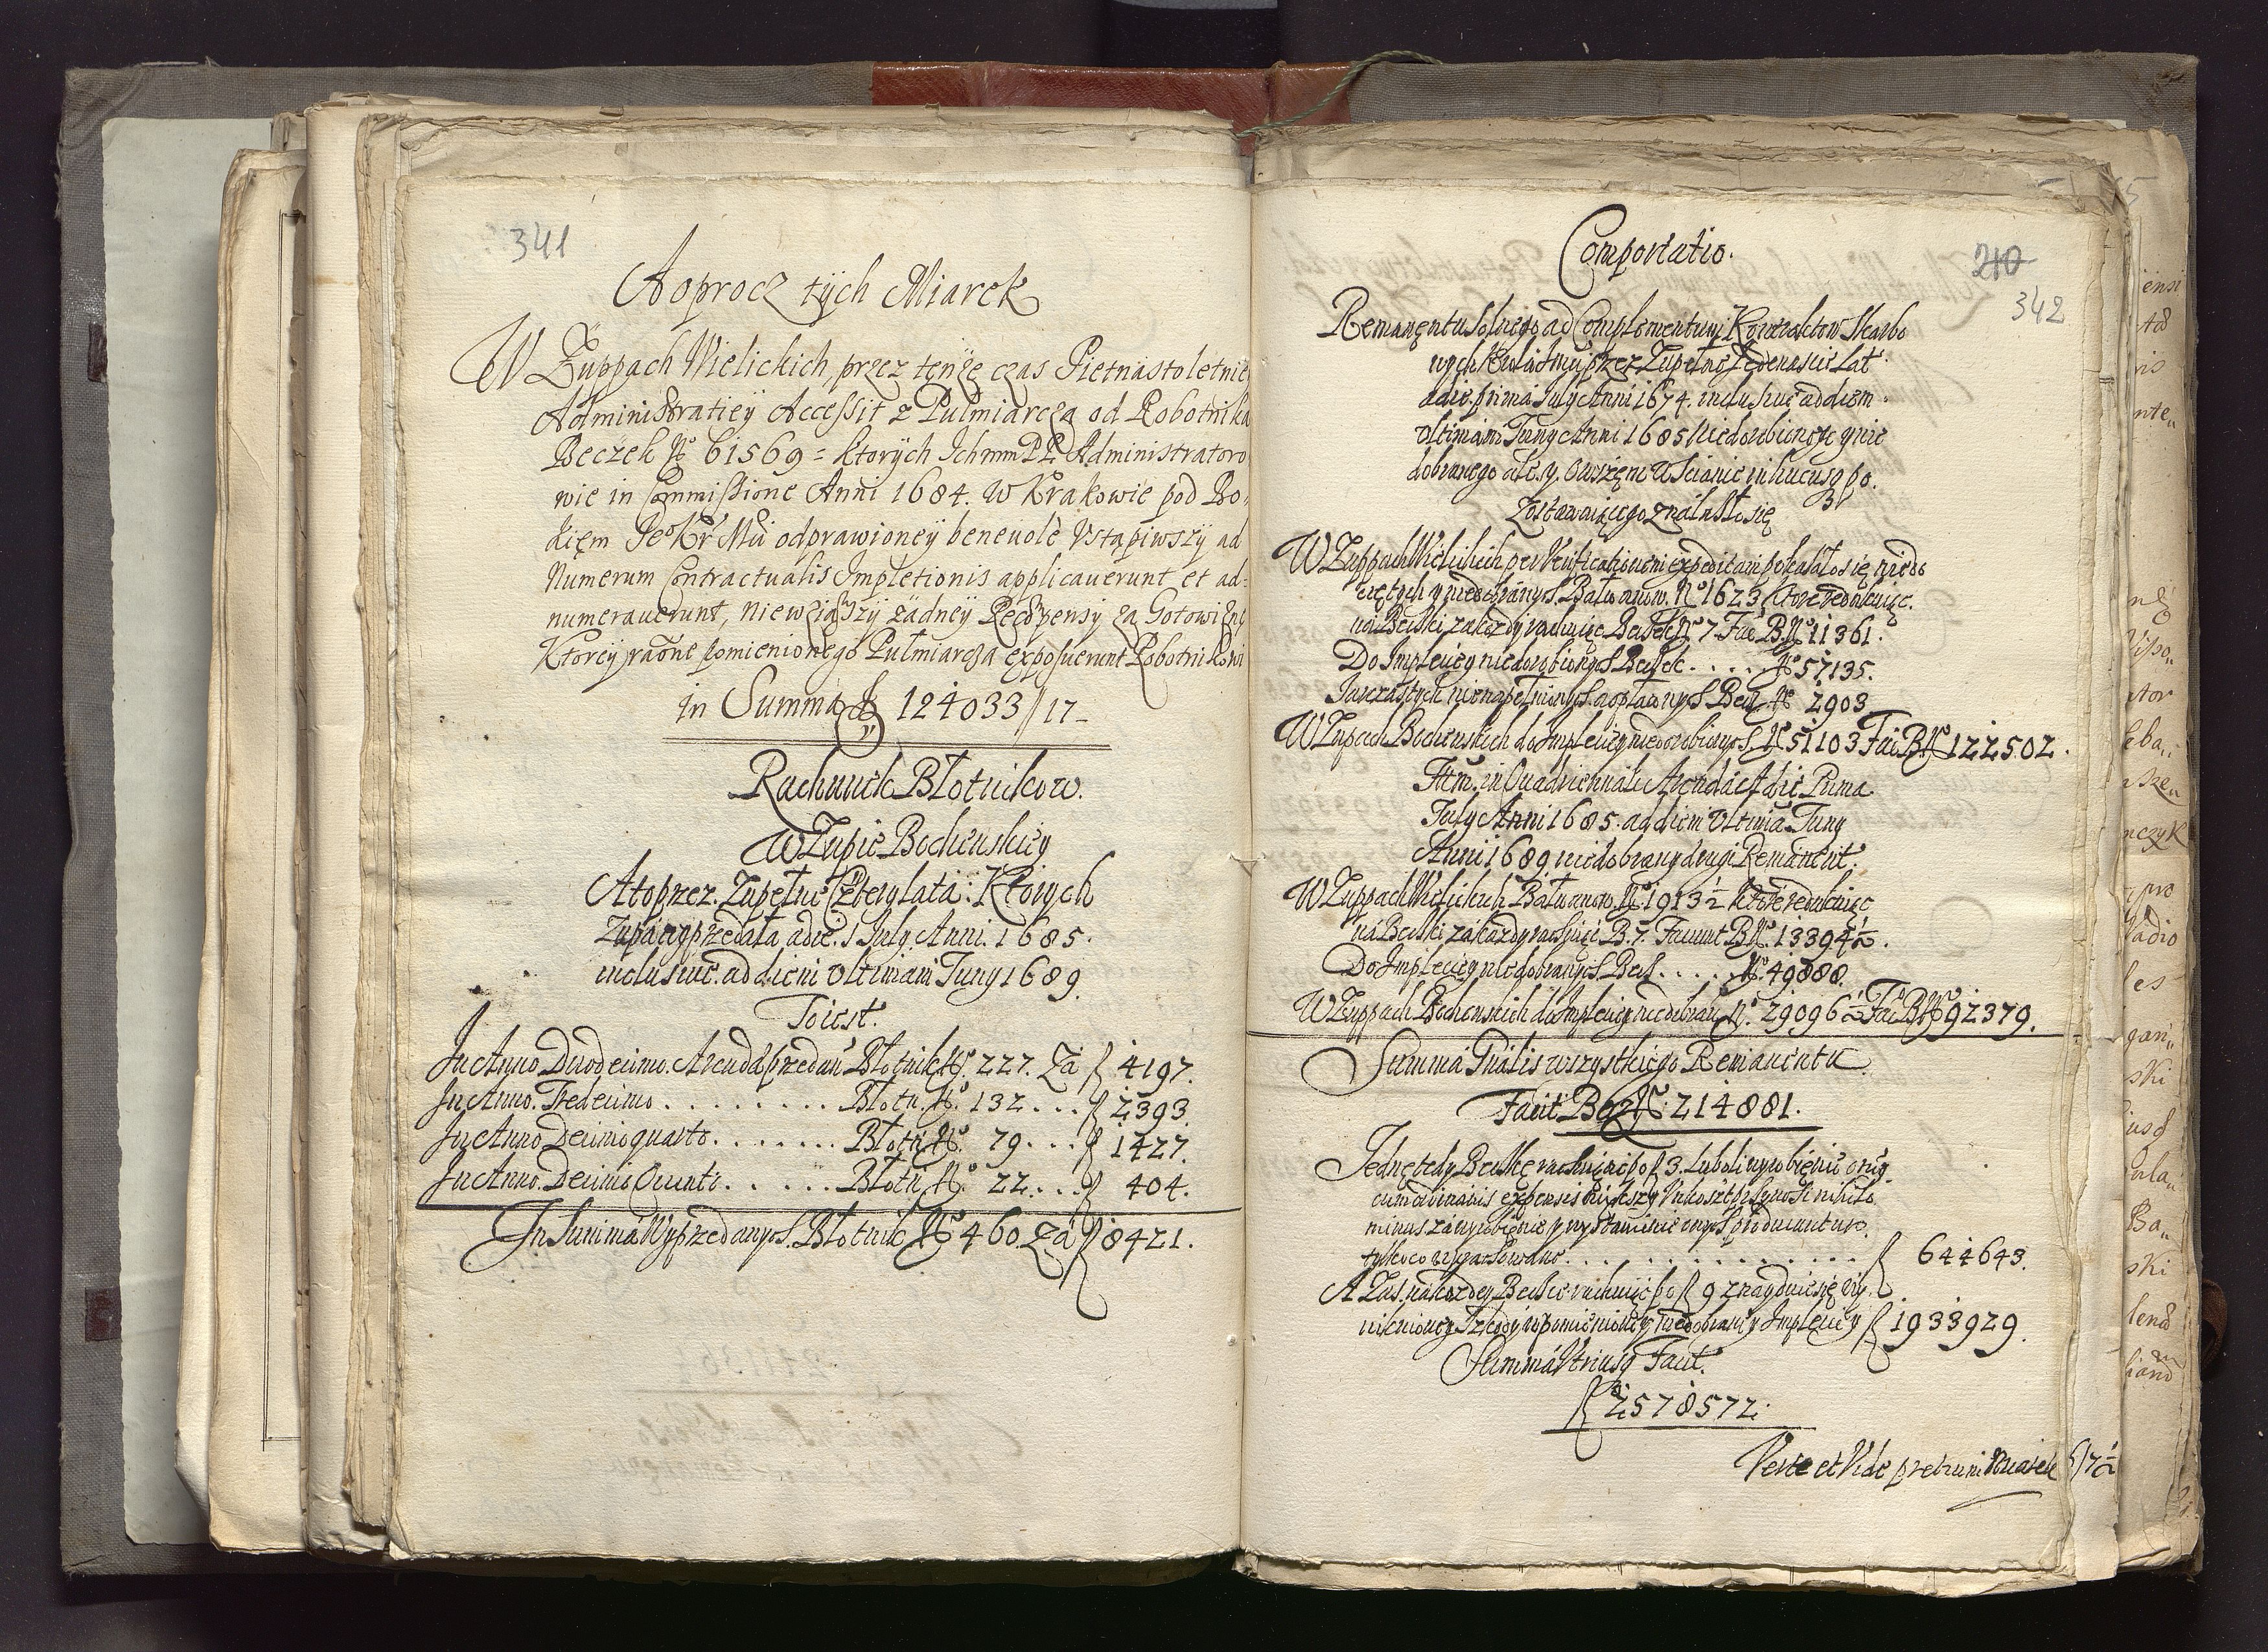 341
A oprocz tych Miarek
W Żuppach Wielickich, przez tenże czas Pietnastoletniey
Administratiey Accessit z Pułmiarcza od Robotnika
Beczek No 61569 = ktorych Ichmm PP Administratoro
wie in Commissione Anni 1684. W Krakowie pod Bo
kięm Je° Kr Mći odprawioney beneuolè Vstąpiwszy ad
Numerum Contractualis Impletionis applicauerunt et ad=
numerauerunt, nie wziąwszy żadney Recompensy za Gotowiznę
Ktorey raõne pomienionego Pułmiarcza exposuerunt Robotnikowi
in Summa f 124033//17_
Rachunek Błotnikow.
W Zupie Bochenskiey
A to przez Zupełne Cztery lata: Ktorych
Zupa wyprzedała a die 1 July Anni. 1685.
inclusiue ad diem Vltimam Juny 1689.
To iest.
In Anno Duodecimo. Arendæ przedan Błotnik No. 227. Za f 4197.
In Anno. Tredecimo . . . . . . . . Błotn. No. 132 . . . f 2393.
In Anno Decimoquarto. . . . . . . . Błotn. No. 79. . . . f 1427.
In Anno. Decimo Quinto . . . . . . Błotn. No. 22. . . . f 404.
In Summa Wyprzedanych Błotnik No 460. Za f 8421.
Comportatio.
210
342
Remanentu Solnego ad Complementum Kontraktow Skarbo
wych Krola Jmći przez Zupełne Jedenascie Lat
a die prima July Anni 1674. incluhuè ad diem
Vltimam Juny Anni 1685 Niedorobionego y nie
dobranego ale y owszem w Scianie in hucusq po.
zostawaiącego znalazło się
W Zuppach Wielickich per Verificationem expeditam pokazało się niedo
ciętych y niedobranych Bałwanow. No 1623 ktore redukuiąc.
na Beczki za kazdy rachuiąc Beczek No 7. Fac B. No 11361.
Do Impleciey niedorobionych Beczek . . . . No 57135.
Beczek No 2903
W Zupach Bochenskich do Impleciey niedorobionych No 51103 Fac B No 122502.
Item. in Quadriennali Arenda A die Prima
July Anni 1685. ad diem Vltimã Juny
Anni 1689 niedobrany drugi Remanent.
W Zuppach Wielickich Bałwanow. No 1913½ ktore redukuiąc
na Beczki za kazdy rachuiąc B. 7. Faciunt B No. 13394½.
Do Impleciey niedobranych Becz . . . . . No. 49888.
W Zuppach Bochenskich do Impleciey niedobrano No. 29096½ Fac B No 92379.
Summa Gnalis wszystkiego Remanentu
Facit Becz No: 214881.
Jednę tedy Beczkę rachuiąc po f 3. lubo
cum ordinariis expensis
minus za wyrobienie y wystawienie onych producuntur
tylko co . . . . . . . . . . . . . . f 644643.
A Zas na kazdey Beczce rachuiąc po f 9 znayduie się wy
Impleciey f 1933929.
Summa Vtriusq Facit.
f 2578572.
Verte et Vide pretium Miarek